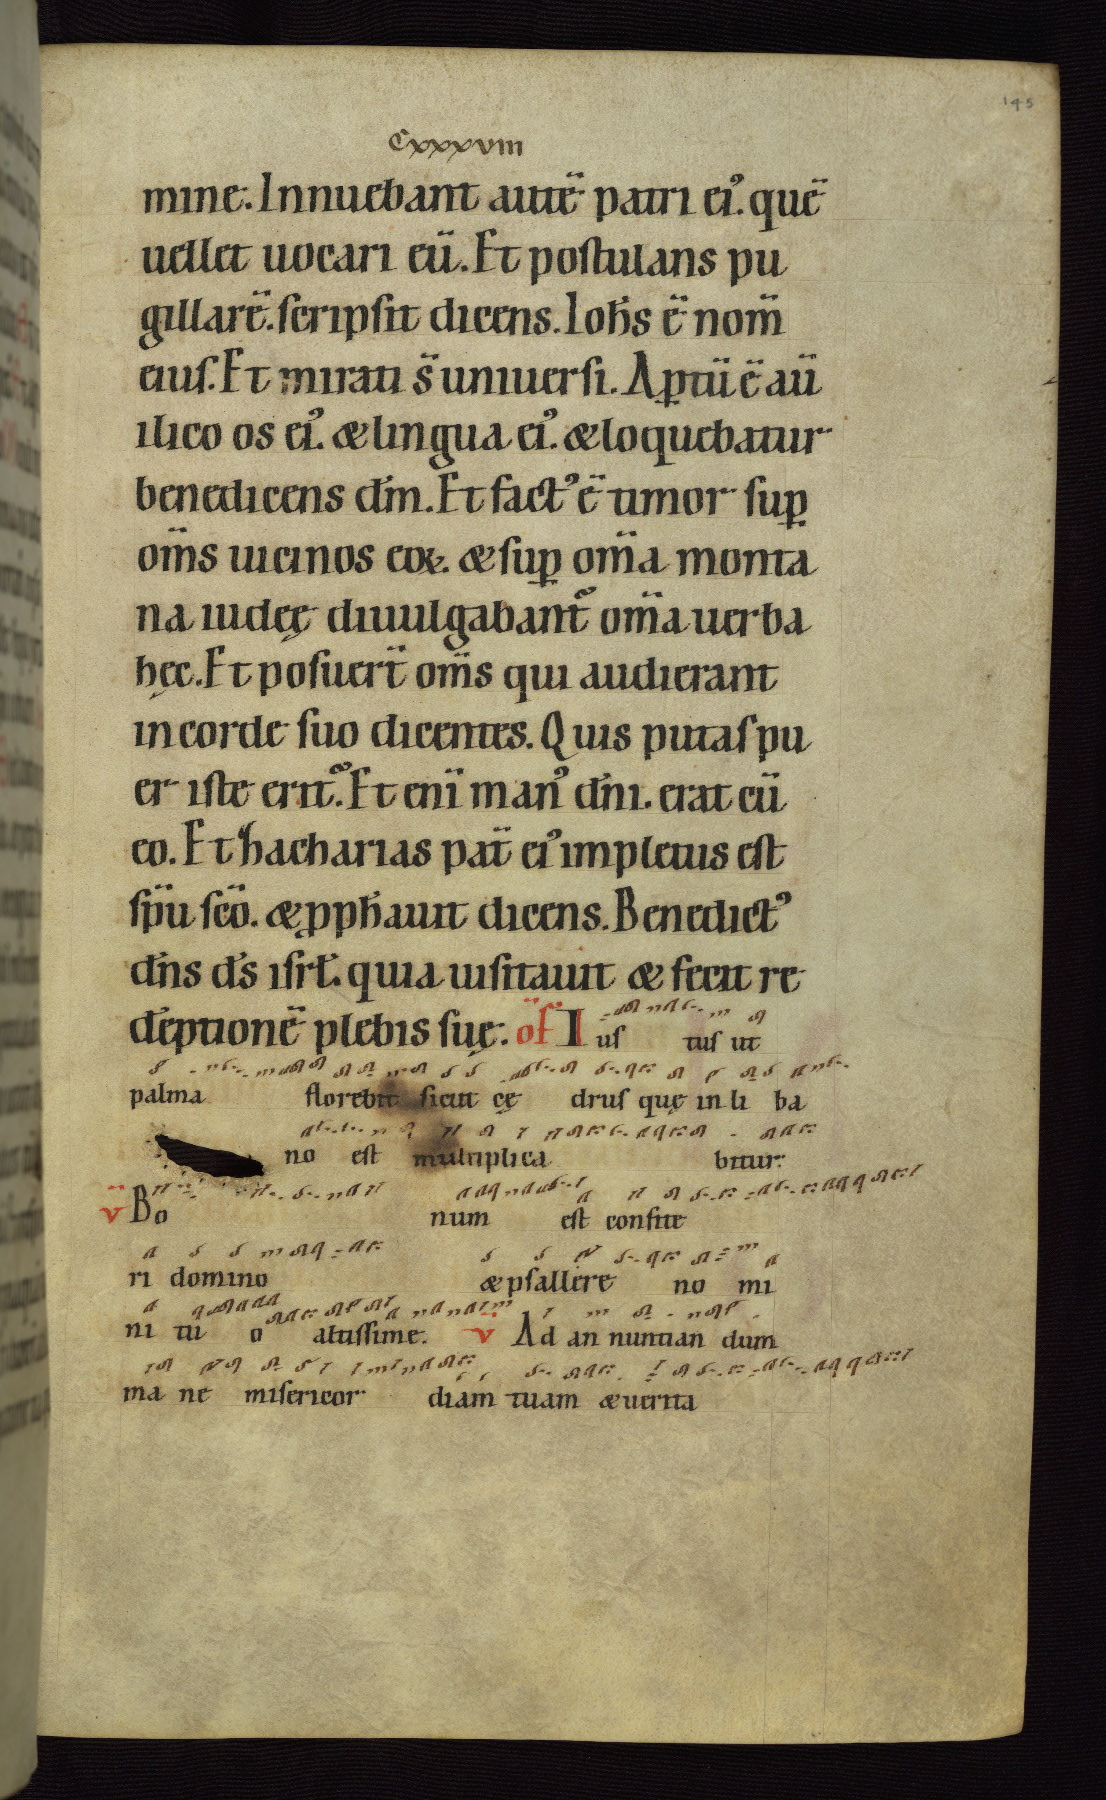 145
Cxxxviii
mine. Innuebant autē patri ei᾿. quē
uellet uocari eū. Et postulans pu
gillarē. scripsit dicens. Ioh̄s ē nom̄
eius. Et mirati s̄ uniuersi. Aꝑtū ē aū
ilico os ei᾿. & lingua ei᾿. & loquebatur
benedicens dn̄m. Et fact᾿ ē timor suꝑ
om̄s uicinos eoꝝ. & suꝑ om̄a monta
na iudeę diuulgabant᾿ om̄a uerba
hęc. Et posuer̄t om̄s qui audierant
in corde suo dicentes. Quis putas pu
er iste erit? Et eni̅ man᾿ dn̄i. erat cū
eo. Et zacharias pat̄ ei᾿ impletus est
sp̄u sc̄o. & ꝓph̄auit dicens. Benedict᾿
dn̄s ds̄ isrl̄. quia uisitauit & fecit re
dēptionē plebis suę. of̄ Ius tus ut
palma florebit sicut cę drus quę in li ba
no est multiplica bitur.
v̄ Bo num est confite
ri domino & psallere no mi
ni tu o altissime. v̄ Ad an nuntian dum
ma ne misericor diam tuam & uerita